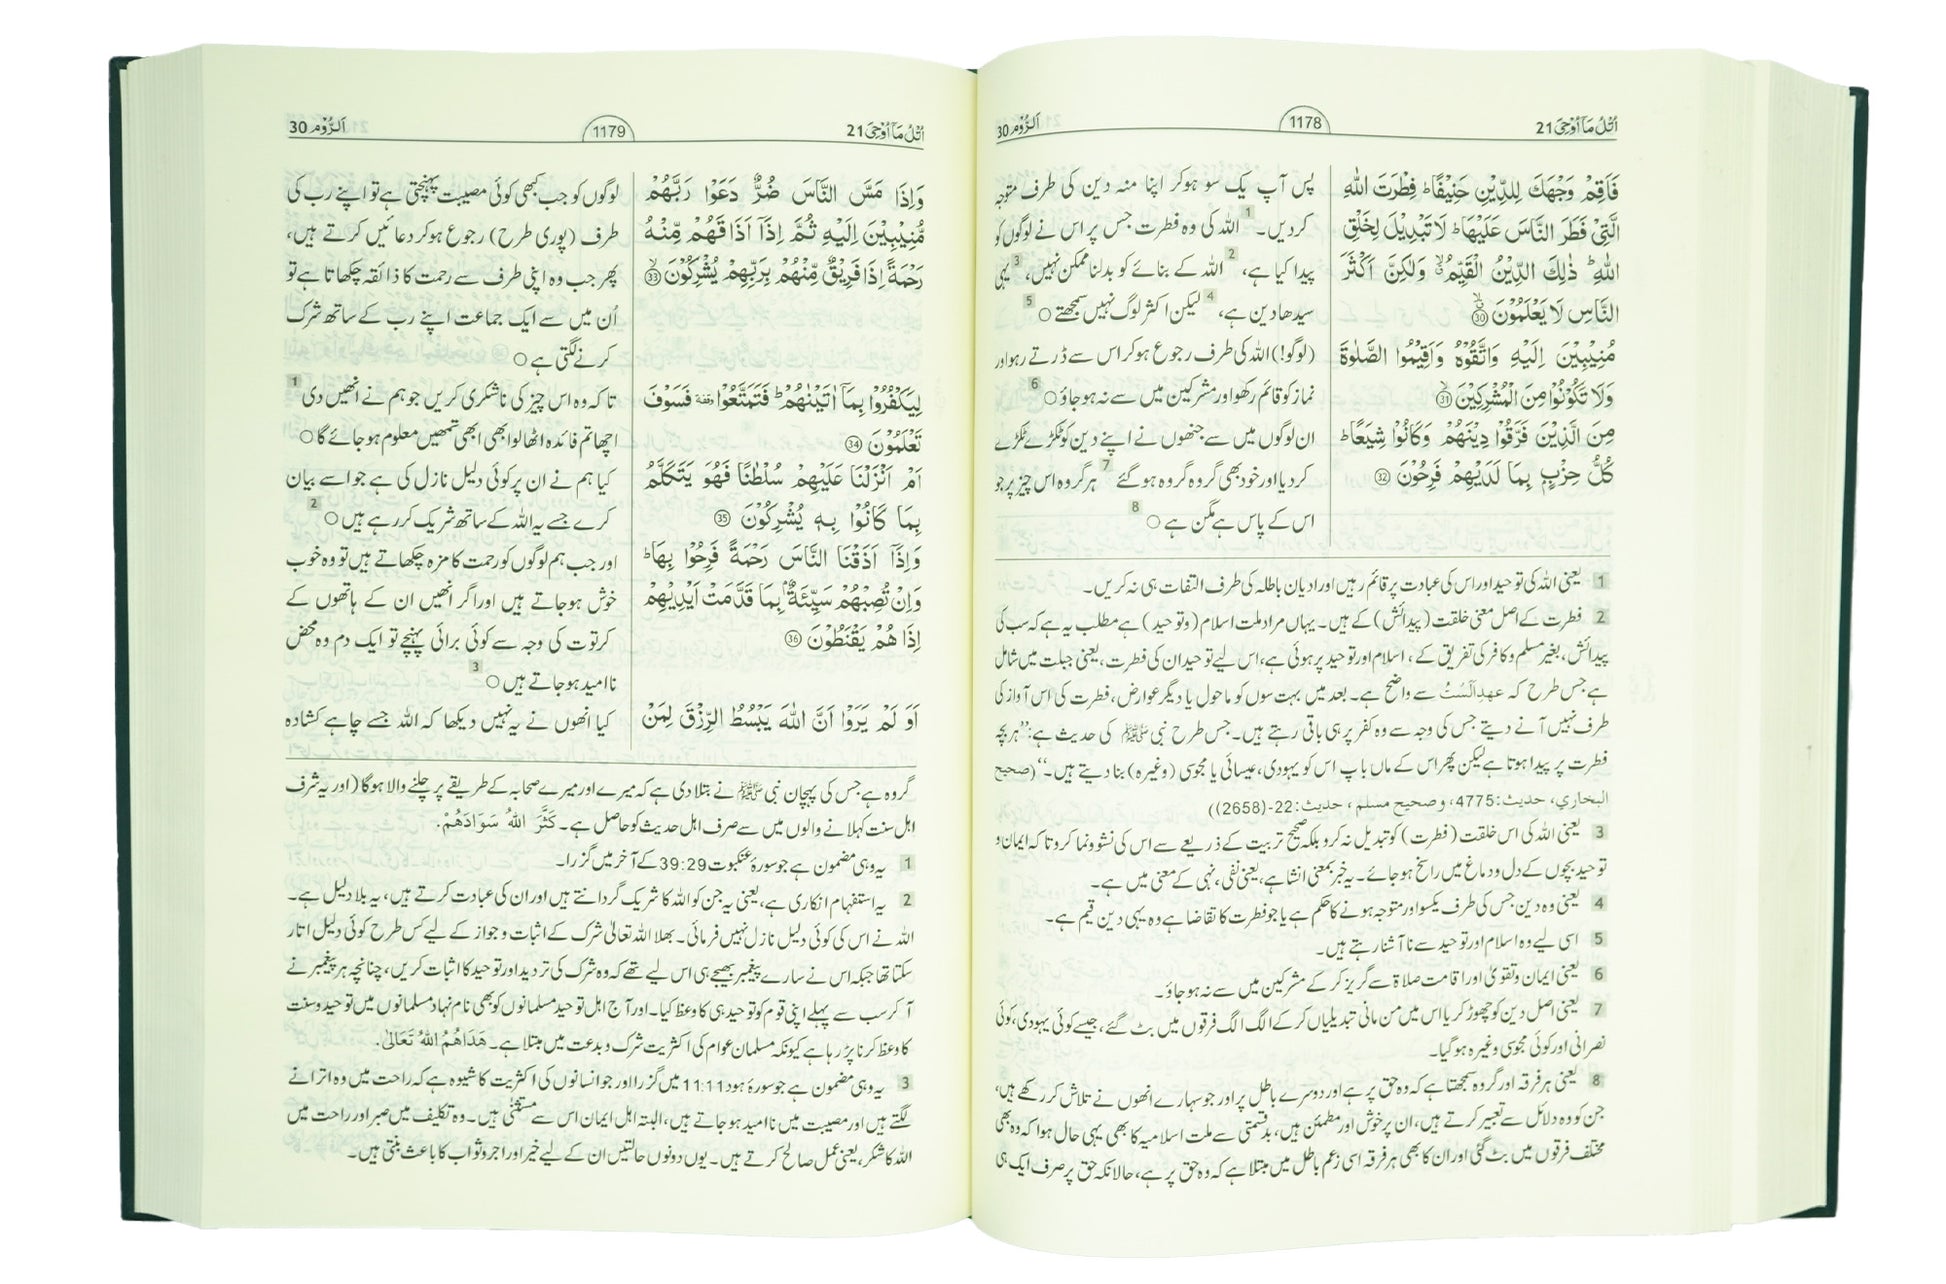 اُتْلُ مَآ اُوْحِیَ 21
1178
اَلرُّوْم 30
فَاَقِمْ وَجْهَكَ لِلدِّيْنِ حَنِيْفًا ؕ فِطْرَتَ اللّٰهِ
الَّتِيْ فَطَرَ النَّاسَ عَلَيْهَا ؕ لَا تَبْدِيْلَ لِخَلْقِ
اللّٰهِ ؕ ذٰلِكَ الدِّيْنُ الْقَيِّمُ ۙ وَلٰكِنَّ اَكْثَرَ
النَّاسِ لَا يَعْلَمُوْنَ ۙ 30
مُنِيْبِيْنَ اِلَيْهِ وَاتَّقُوْهُ وَاَقِيْمُوا الصَّلٰوةَ
وَلَا تَكُوْنُوْا مِنَ الْمُشْرِكِيْنَ ۙ 31
مِنَ الَّذِيْنَ فَرَّقُوْا دِيْنَهُمْ وَكَانُوْا شِيَعًا ؕ
كُلُّ حِزْبٍۭ بِمَا لَدَيْهِمْ فَرِحُوْنَ 32
پس آپ یک سو ہوکر اپنا منہ دین کی طرف متوجہ
کردیں۔ 1 اللہ کی وہ فطرت جس پر اس نے لوگوں کو
پیدا کیا ہے، 2 اللہ کے بنائے کو بدلنا ممکن نہیں، 3 یہی
سیدھا دین ہے، 4 لیکن اکثر لوگ نہیں سمجھتے ○ 5
(لوگو!) اللہ کی طرف رجوع ہوکر اس سے ڈرتے رہو اور
نماز کو قائم رکھو اور مشرکین میں سے نہ ہوجاؤ ○ 6
ان لوگوں میں سے جنھوں نے اپنے دین کو ٹکڑے ٹکڑے
کردیا اور خود بھی گروہ گروہ ہوگئے 7 ہر گروہ اس چیز پر جو
اس کے پاس ہے مگن ہے ○ 8
1 یعنی اللہ کی توحید اور اس کی عبادت پر قائم رہیں اور ادیان باطلہ کی طرف التفات ہی نہ کریں۔
2 فطرت کے اصل معنی خلقت (پیدائش) کے ہیں۔ یہاں مراد ملت اسلام (و توحید) ہے مطلب یہ ہے کہ سب کی
پیدائش، بغیر مسلم و کافر کی تفریق کے، اسلام اور توحید پر ہوئی ہے، اس لیے توحید ان کی فطرت، یعنی جبلت میں شامل
ہے جس طرح کہ عہد اَلَسْتُ سے واضح ہے۔ بعد میں بہت سوں کو ماحول یا دیگر عوارض، فطرت کی اس آواز کی
طرف نہیں آنے دیتے جس کی وجہ سے وہ کفر پر ہی باقی رہتے ہیں۔ جس طرح نبی ﷺ کی حدیث ہے: ’’ہر بچہ
فطرت پر پیدا ہوتا ہے لیکن پھر اس کے ماں باپ اس کو یہودی، عیسائی یا مجوسی (وغیرہ) بنا دیتے ہیں۔‘‘ (صحیح
البخاري، حدیث: 4775، وصحیح مسلم، حدیث: 22-(2658))
3 یعنی اللہ کی اس خلقت (فطرت) کو تبدیل نہ کرو بلکہ صحیح تربیت کے ذریعے سے اس کی نشوونما کرو تاکہ ایمان و
توحید بچوں کے دل و دماغ میں راسخ ہوجائے۔ یہ خبر بمعنی انشا ہے، یعنی نفی، نہی کے معنی میں ہے۔
4 یعنی وہ دین جس کی طرف یکسو اور متوجہ ہونے کا حکم ہے یا جو فطرت کا تقاضا ہے وہ یہی دین قیم ہے۔
5 اسی لیے وہ اسلام اور توحید سے ناآشنا رہتے ہیں۔
6 یعنی ایمان و تقویٰ اور اقامت صلاۃ سے گریز کرکے مشرکین میں سے نہ ہوجاؤ۔
7 یعنی اصل دین کو چھوڑ کر یا اس میں من مانی تبدیلیاں کرکے الگ الگ فرقوں میں بٹ گئے، جیسے کوئی یہودی، کوئی
نصرانی اور کوئی مجوسی وغیرہ ہوگیا۔
8 یعنی ہر فرقہ اور گروہ سمجھتا ہے کہ وہ حق پر ہے اور دوسرے باطل پر اور جو سہارے انھوں نے تلاش کر رکھے ہیں،
جن کو وہ دلائل سے تعبیر کرتے ہیں، ان پر خوش اور مطمئن ہیں، بدقسمتی سے ملت اسلامیہ کا بھی یہی حال ہوا کہ وہ بھی
مختلف فرقوں میں بٹ گئی اور ان کا بھی ہر فرقہ اسی زعم باطل میں مبتلا ہے کہ وہ حق پر ہے، حالانکہ حق پر صرف ایک ہی
اُتْلُ مَآ اُوْحِیَ 21
1179
اَلرُّوْم 30
وَاِذَا مَسَّ النَّاسَ ضُرٌّ دَعَوْا رَبَّهُمْ
مُّنِيْبِيْنَ اِلَيْهِ ثُمَّ اِذَاۤ اَذَاقَهُمْ مِّنْهُ
رَحْمَةً اِذَا فَرِيْقٌ مِّنْهُمْ بِرَبِّهِمْ يُشْرِكُوْنَ ۙ 33
لِيَكْفُرُوْا بِمَاۤ اٰتَيْنٰهُمْ ؕ فَتَمَتَّعُوْا ۥ فَسَوْفَ
تَعْلَمُوْنَ 34
اَمْ اَنْزَلْنَا عَلَيْهِمْ سُلْطٰنًا فَهُوَ يَتَكَلَّمُ
بِمَا كَانُوْا بِهٖ يُشْرِكُوْنَ 35
وَاِذَاۤ اَذَقْنَا النَّاسَ رَحْمَةً فَرِحُوْا بِهَا ؕ
وَاِنْ تُصِبْهُمْ سَيِّئَةٌۢ بِمَا قَدَّمَتْ اَيْدِيْهِمْ
اِذَا هُمْ يَقْنَطُوْنَ 36
اَوَ لَمْ يَرَوْا اَنَّ اللّٰهَ يَبْسُطُ الرِّزْقَ لِمَنْ
لوگوں کو جب کبھی کوئی مصیبت پہنچتی ہے تو اپنے رب کی
طرف (پوری طرح) رجوع ہوکر دعائیں کرتے ہیں،
پھر جب وہ اپنی طرف سے رحمت کا ذائقہ چکھاتا ہے تو
اُن میں سے ایک جماعت اپنے رب کے ساتھ شرک
کرنے لگتی ہے ○
تاکہ وہ اس چیز کی ناشکری کریں جو ہم نے انھیں دی 1
اچھا تم فائدہ اٹھالو ابھی ابھی تمھیں معلوم ہوجائے گا ○
کیا ہم نے ان پر کوئی دلیل نازل کی ہے جو اسے بیان
کرے جسے یہ اللہ کے ساتھ شریک کررہے ہیں ○ 2
اور جب ہم لوگوں کو رحمت کا مزہ چکھاتے ہیں تو وہ خوب
خوش ہوجاتے ہیں اور اگر انھیں ان کے ہاتھوں کے
کرتوت کی وجہ سے کوئی برائی پہنچے تو ایک دم وہ محض
ناامید ہوجاتے ہیں ○ 3
کیا انھوں نے یہ نہیں دیکھا کہ اللہ جسے چاہے کشادہ
گروہ ہے جس کی پہچان نبی ﷺ نے بتلادی ہے کہ میرے اور میرے صحابہ کے طریقے پر چلنے والا ہوگا (اور یہ شرف
اہل سنت کہلانے والوں میں سے صرف اہل حدیث کو حاصل ہے۔ کَثَّرَ اللّٰهُ سَوَادَهُمْ.
1 یہ وہی مضمون ہے جو سورۂ عنکبوت 39:29 کے آخر میں گزرا۔
2 یہ استفہام انکاری ہے، یعنی یہ جن کو اللہ کا شریک گردانتے ہیں اور ان کی عبادت کرتے ہیں، یہ بلا دلیل ہے۔
اللہ نے اس کی کوئی دلیل نازل نہیں فرمائی۔ بھلا اللہ تعالیٰ شرک کے اثبات و جواز کے لیے کس طرح کوئی دلیل اتار
سکتا تھا جبکہ اس نے سارے پیغمبر بھیجے ہی اس لیے تھے کہ وہ شرک کی تردید اور توحید کا اثبات کریں، چنانچہ ہر پیغمبر نے
آکر سب سے پہلے اپنی قوم کو توحید ہی کا وعظ کیا۔ اور آج اہل توحید مسلمانوں کو بھی نام نہاد مسلمانوں میں توحید و سنت
کا وعظ کرنا پڑ رہا ہے کیونکہ مسلمان عوام کی اکثریت شرک و بدعت میں مبتلا ہے۔ هَدَاهُمُ اللّٰهُ تَعَالیٰ.
3 یہ وہی مضمون ہے جو سورۂ ہود 11:11 میں گزرا اور جو انسانوں کی اکثریت کا شیوہ ہے کہ راحت میں وہ اترانے
لگتے ہیں اور مصیبت میں ناامید ہوجاتے ہیں، البتہ اہل ایمان اس سے مستثنیٰ ہیں۔ وہ تکلیف میں صبر اور راحت میں
اللہ کا شکر، یعنی عمل صالح کرتے ہیں۔ یوں دونوں حالتیں ان کے لیے خیر اور اجر و ثواب کا باعث بنتی ہیں۔